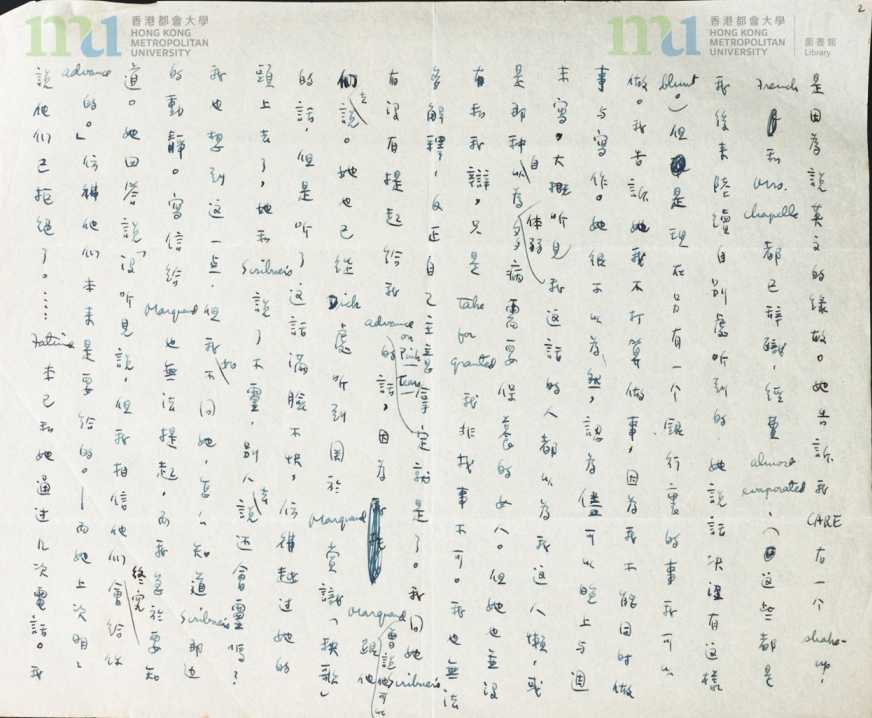 香港都會大學
HONG KONG
METROPOLITAN
UNIVERSITY
香港都會大學
HONG KONG
METROPOLITAN
UNIVERSITY
圖書館
Library
2
是因為說英文的緣故。她告訴我 CARE 有一個 shake-up,
French 和 Mrs. Chapelle 都已辭職,經費 almost evaporated,(這些都是
我後來陸續自別處聽到的,她說話決沒有這樣
blunt。)但是現在另有一個銀行裏的事我可以
做。我告訴她我不打算做事,因為我不能同時做
事與寫作。她很不以為然,認為儘可以晚上與週
末寫。大概聽見我這話的人都以為我這人懶,或
是那種自以為體弱多病需要保養的女人。但她也並沒
有和我辯,只是 take for granted 我非找事不可。我也無法
多解釋,反正自己主意拿定就是了。我問她 Scribner's
有沒有提起給我 advance on Pink Tears 的話,因為 Marquand 曾說他可以跟他
們去說。她也已經從 Dick 處聽到關於 Marquand 賞識「秧歌」
的話,但是聽了這話滿臉不快,彷彿越過她的
頭上去了,她和 Scribner's 說了不靈,別人去說還會靈嗎?
我也想到這一點,但我如不問她,怎麼知道 Scribner's 那邊
的動靜。寫信給 Marquand 也無法提起,而我急於要知
道。她回答說「沒聽見說,但我相信他們終究會給你
advance 的。」彷彿他們本來是要給的。—而她上次明明
說他們已拒絕了。…… Fatima 本已和她通過幾次電話。我